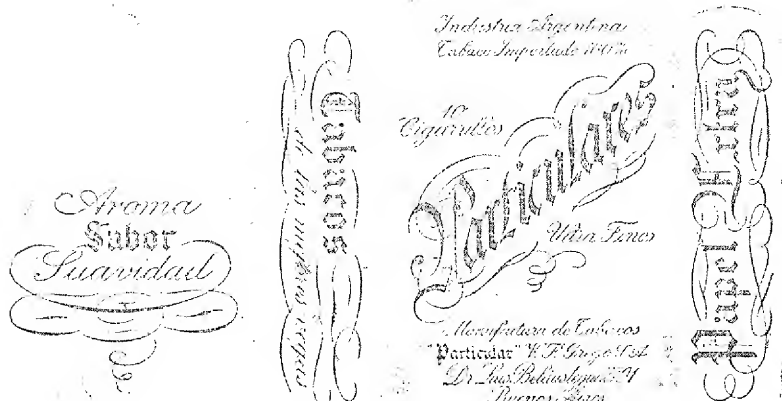 Aroma
Sabor
Suavidad
Tabacos
de las mejores
Industria Argentina
Tabaco Importado
10
Cigarrillos
Particulares
Ultra Finos
Manufactura de Tabacos
"Particular" V. F. Grego
Dr. Luis Beláustegui
Buenos Aires
Papel Extra